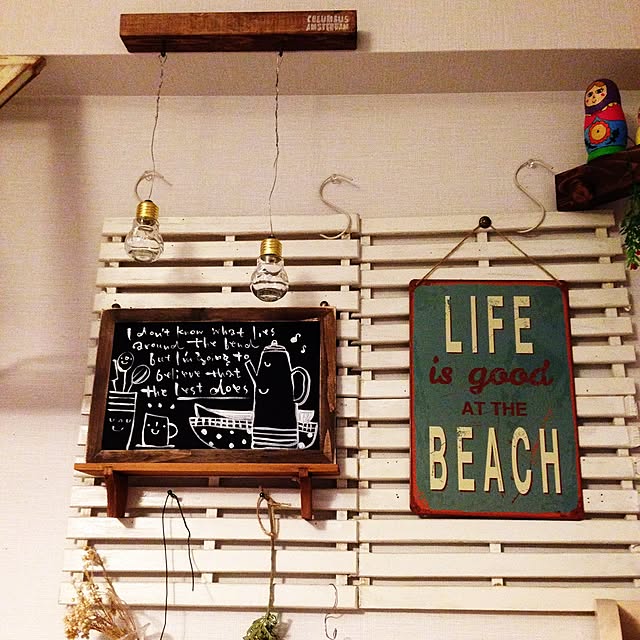 COLUMBUS
AMSTERDAM
I don't know what lies
around the bend
but I'm going to
believe that
the best does
LIFE
is good
AT THE
BEACH